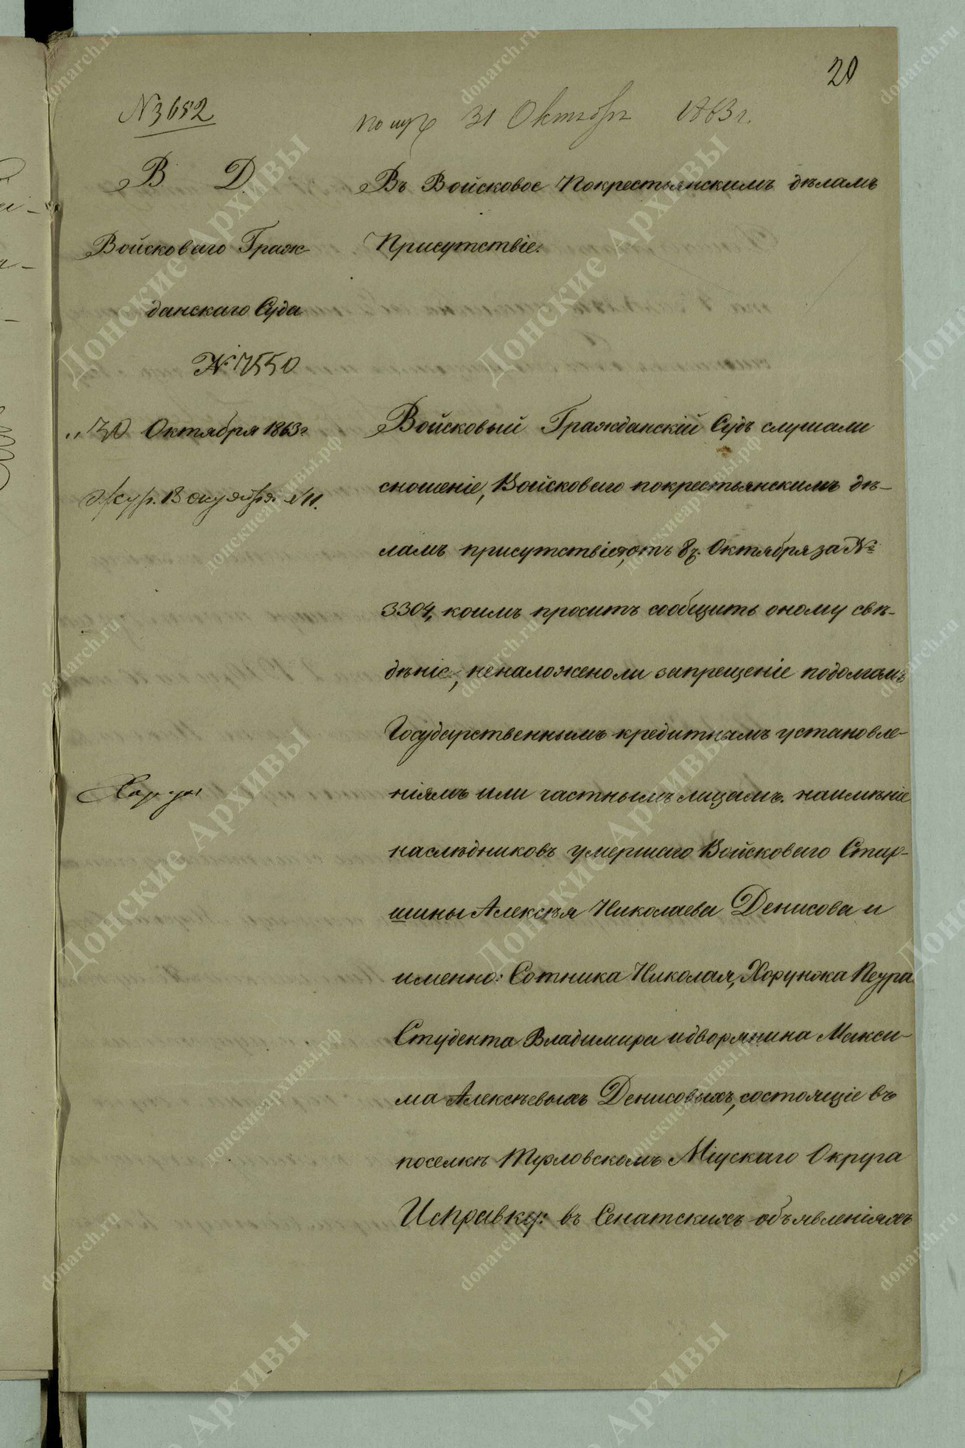 20
№ 3652
получ 31 Октября 1863 г.
В. Д.
Войсковаго Граж-
данскаго Суда
№ 7550
„30 Октября 1863 г
Жур. 18 октября № 11.
Въ Войсковое Покрестьянскимъ дѣламъ
Присутствіе:
Войсковый Гражданскій Судъ слушали
сношеніе, Войсковаго покрестьянскимъ дѣ-
ламъ присутствія, отъ 8го Октября за №
3304, коимъ проситъ сообщить оному свѣ-
дѣніе, неналоженоли запрещеніе подолгамъ
Государственнымъ кредитнымъ установле-
ніямъ или частнымъ лицамъ наимѣніе
наслѣдниковъ умершаго Войсковаго Стар-
шины Алексѣя Николаева Денисова и
именно: Сотника Николая, Хорунжа Петра
Студента Владимира идворянина Макси-
ма Алексѣевыхъ Денисовыхъ, состоящіе въ
поселкѣ Мирловскомъ Міускаго Округа
Исправку: въ Сенатскихъ объявленіяхъ
Донские Архивы
donarch.ru
донскиеархивы.рф